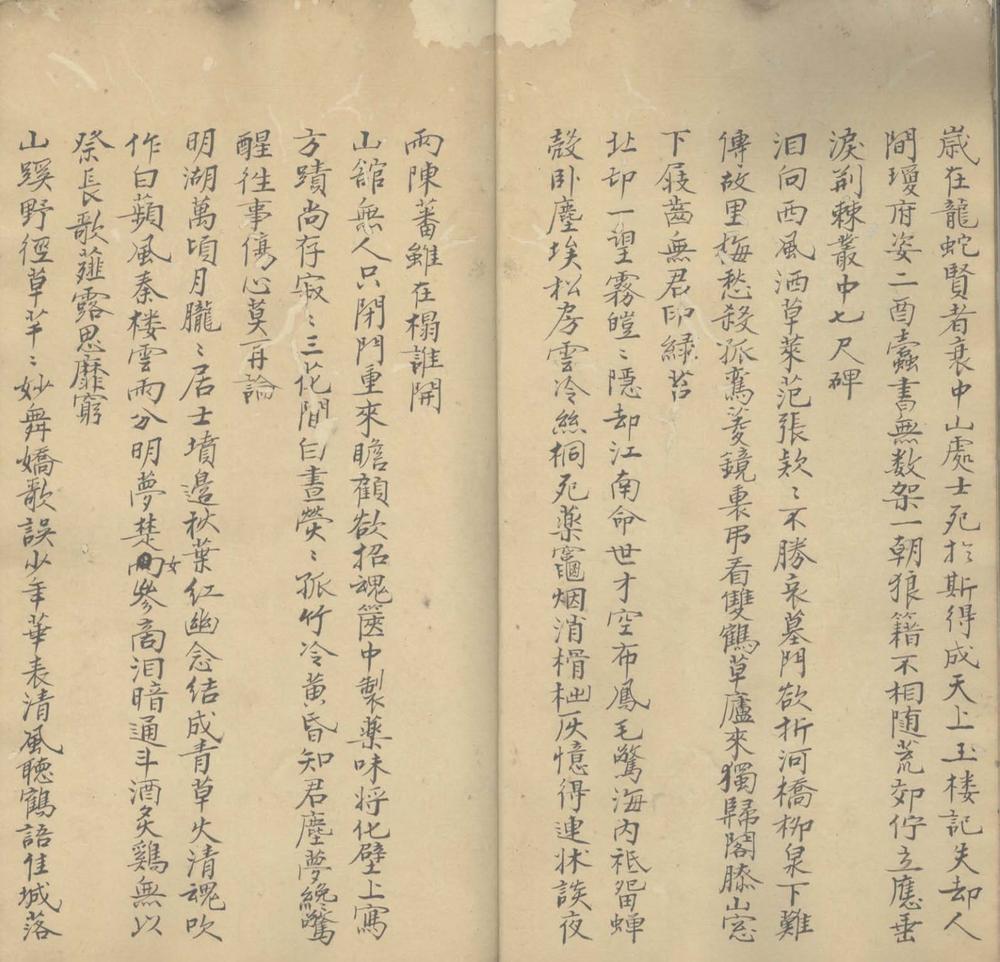 歲在龍蛇賢者衰中山處士死於斯得成天上玉楼記失却人
間瓊府姿二酉蠹書無数架一朝狼籍不相随荒郊佇立應垂
淚荆棘叢中七尺碑
泪向西風洒草萊范張欵〻不勝哀墓門欲折河橋柳泉下難
傳故里梅愁殺孤鸞菱鏡裏吊看雙鶴草廬來獨歸閣膝山窓
下屐齒無君印緑苔
北邙一望霧皚〻隱却江南命世才空布鳳毛驚海内祗留蟬
殼卧塵埃松房雲冷絲桐死薬竈烟消榾柮灰憶得連牀談夜
雨陳蕃雖在榻誰開
山舘無人只閉門重來瞻顧欲招魂篋中製薬味将化壁上寫
方蹟尚存寂〻三花間白晝熒〻孤竹冷黄昏知君塵夢纔驚
醒徃事傷心莫再論
明湖萬頃月朧〻居士墳邉秋葉紅幽念結成青草火清魂吹
作白蘋風秦楼雲雨分明夢楚女參商泪暗通斗酒炙鷄無以
祭長歌薤露思靡窮
山蹊野徑草芊〻妙舞嬌歌誤少年華表清風聴鶴語佳城落